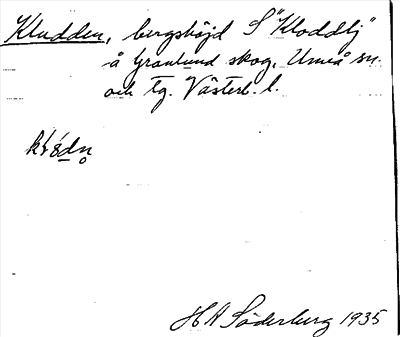 Kludden, bergshöjd S "Kloddbj"
å Granlund skog, Umeå sn.
och tg. Västerb. l.
H A Söderberg 1935